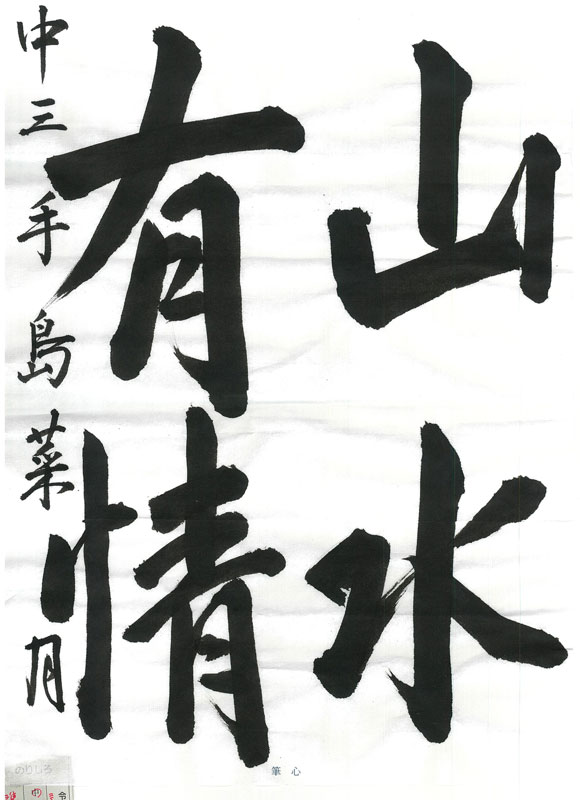 山水
有情
中三 手島菜月
筆心
のりしろ